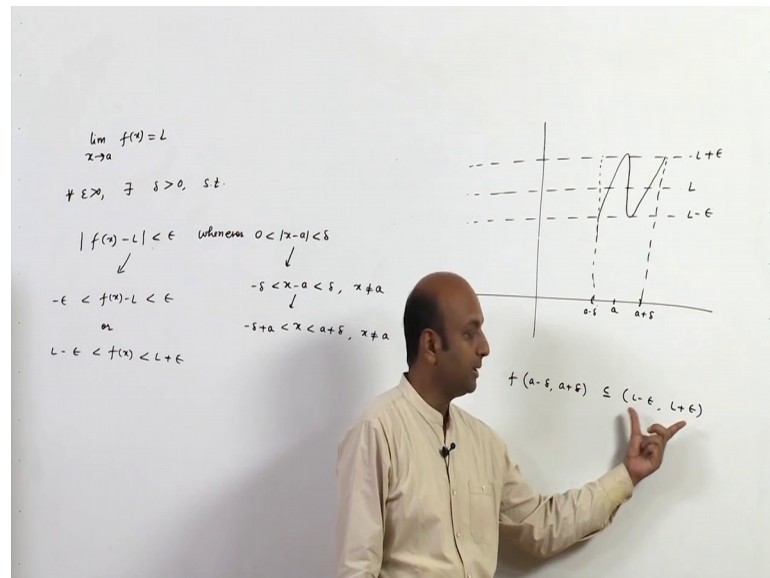 lim f(x) = L
x→a
∀ ε>0, ∃ δ>0, s.t.
|f(x)-L| < ε whenever 0<|x-a|<δ
-ε < f(x)-L < ε
or
L-ε < f(x) < L+ε
-δ < x-a < δ, x≠a
-δ+a < x < a+δ, x≠a
L+ε
L
L-ε
a-δ a a+δ
f(a-δ, a+δ) ⊆ (L-ε, L+ε)